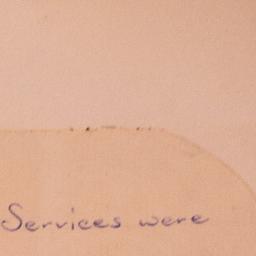 Services were